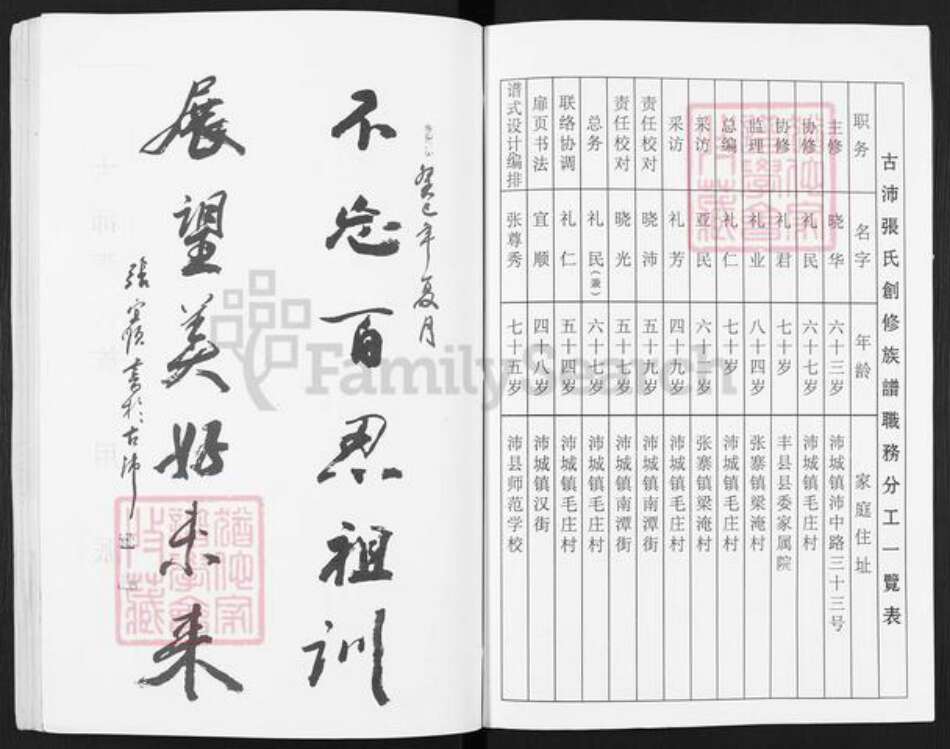 古沛張氏創修族譜職務分工一覽表
职务 名字 年龄 家庭住址
主修 晓华 六十三岁 沛城镇沛中路三十三号
协修 礼民 六十七岁 沛城镇毛庄村
协修 礼君 七十岁 丰县县委家属院
监理 礼业 八十四岁 张寨镇梁淹村
总编 礼仁 七十岁 沛城镇毛庄村
采访 亚民 六十岁 张寨镇梁淹村
采访 礼芳 四十九岁 沛城镇毛庄村
责任校对 晓沛 五十九岁 沛城镇南潭街
责任校对 晓光 五十七岁 沛城镇南潭街
总务 礼民(兼) 六十七岁 沛城镇毛庄村
联络协调 礼仁 五十四岁 沛城镇毛庄村
扉页书法 宜顺 四十八岁 沛城镇汉街
谱式设计编排 张尊秀 七十五岁 沛县师范学校
癸巳年夏月
不忘百忍祖训
展望美好未来
張宜顺書於古沛
FamilySearch